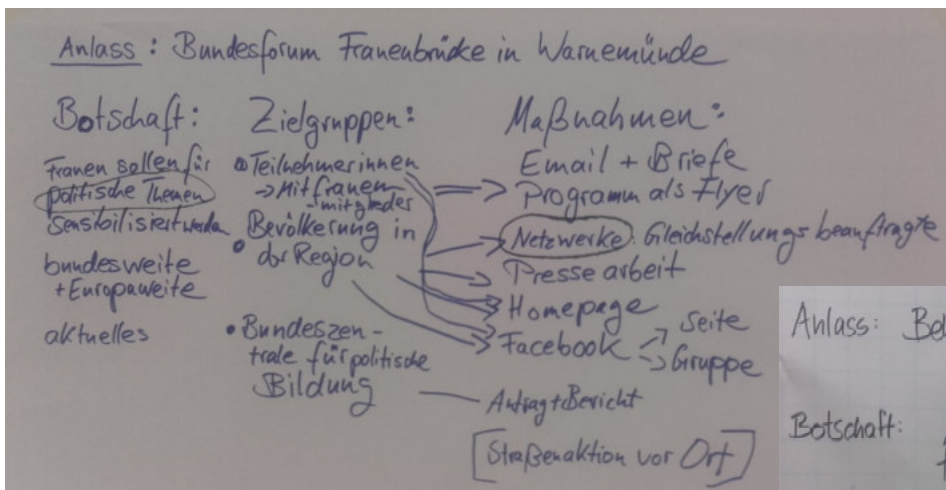 Anlass: Bundesforum Frauenbrücke in Warnemünde
Botschaft:
Frauen sollen für
politische Themen
sensibilisiert werden
bundesweite
+ Europaweite
aktuelles
Zielgruppen:
Teilnehmerinnen
→ Mitfrauen
-mitglieder
Bevölkerung in
der Region
• Bundeszen-
trale für politische
Bildung
Maßnahmen:
Email + Briefe
Programm als Flyer
Netzwerke: Gleichstellungsbeauftragte
Pressearbeit
Homepage
Facebook → Seite
→ Gruppe
Antrag + Bericht
[Straßenaktion vor Ort]
Anlass:
Botschaft: